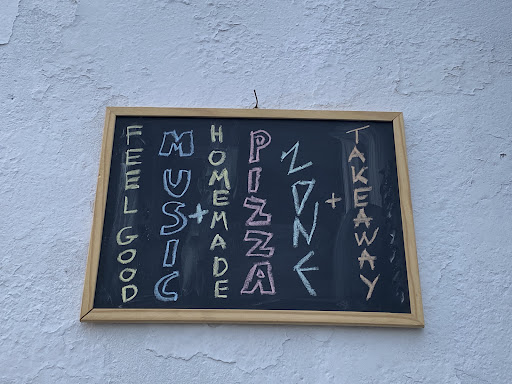 FEEL GOOD
MUSIC
+
HOMEMADE
PIZZA
ZONE
+
TAKEAWAY